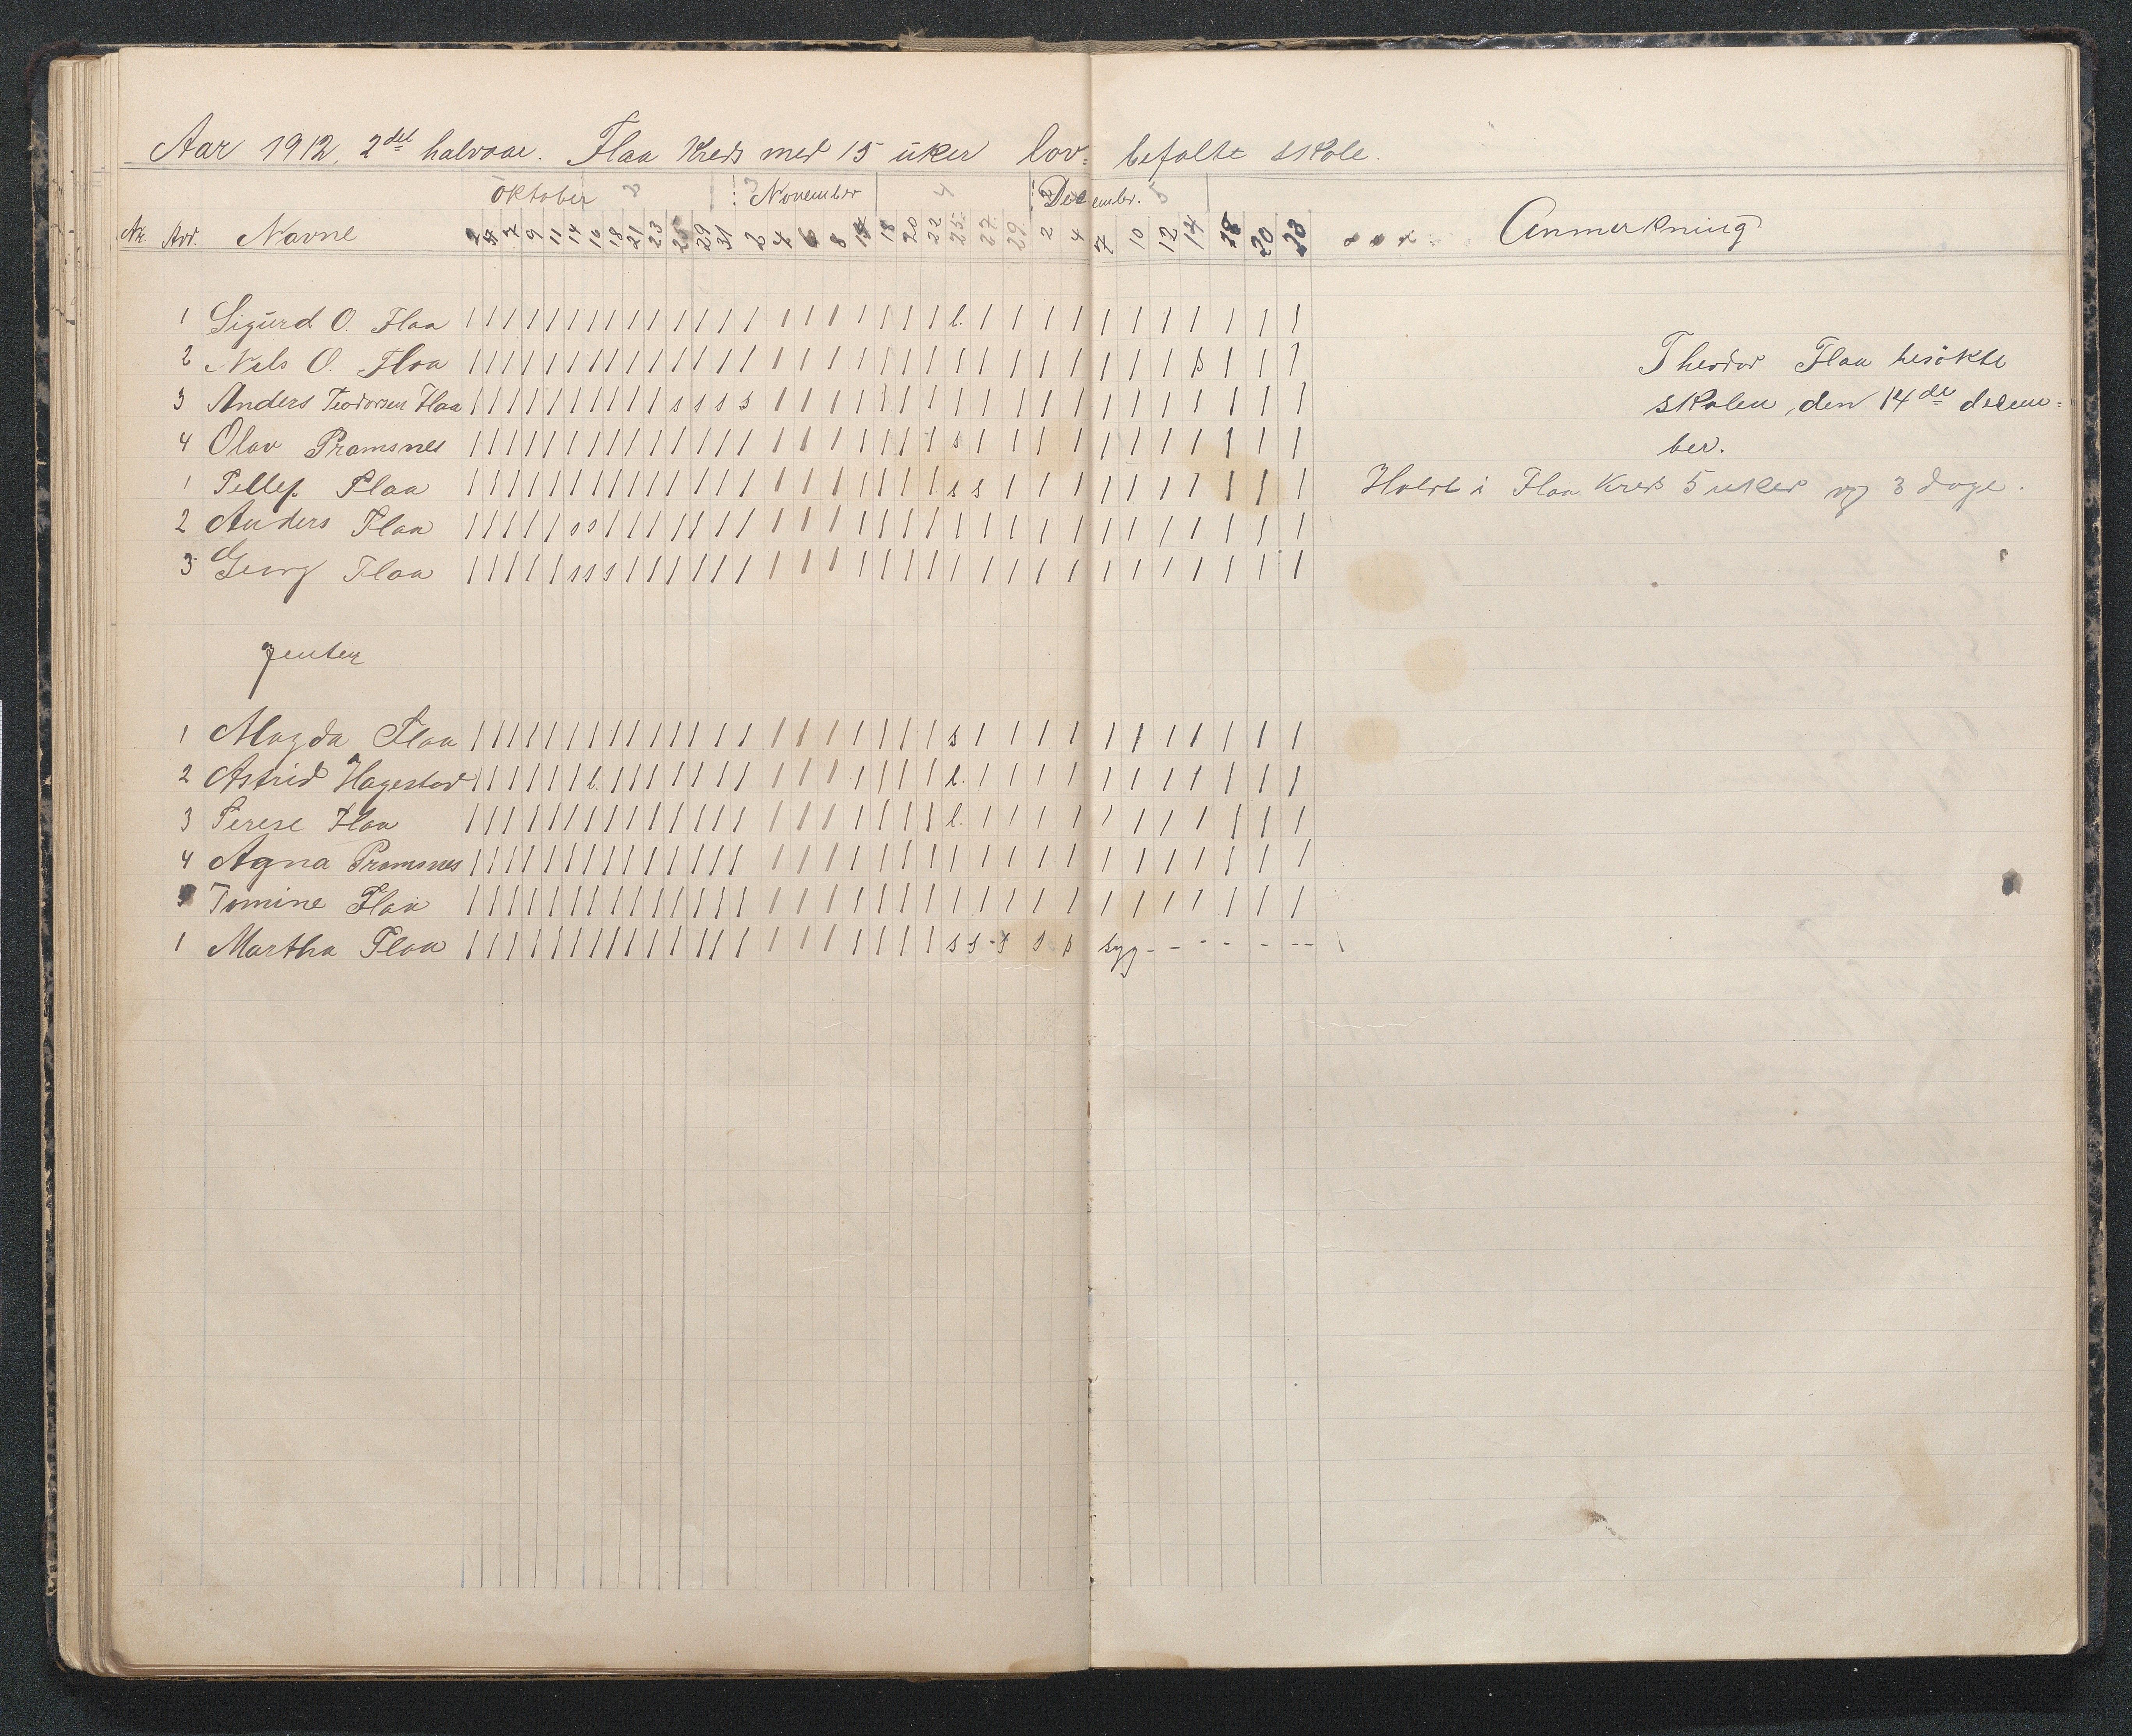 Aar 1912, 2det halvaar. Flaa Kreds med 15 uker lov= befalte skole.
Oktober 3 November 4 December. 5
Nr. Avd. Navne 2 4 7 9 11 14 16 18 21 23 25 29 31 2 4 6 8 18 20 22 25 27 29 2 4 7 10 12 14 18 20 23 Anmerkning
1 Sigurd O. Flaa | | | | | | | | | | | | | | | | | | | | | l. | | | | | | | | | | |
2 Nils O. Flaa | | | | | | | | | | | | | | | | | | | | | | | | | | | | s | | |
Theodor Flaa besøkte
3 Anders Teodorsen Flaa | | | | | | | | | | s s s s | | | | | | | | | | | | | | | | | | |
skolen, den 14de decem=
4 Olav Pramsnes | | | | | | | | | | | | | | | | | | | | | s | | | | | | | | | | |
ber.
1 Tellef Flaa | | | | | | | | | | | | | | | | | | | | | s s | | | | | | | | | |
Holdt i Flaa Kreds 5 uker og 3 dage.
2 Anders Flaa | | | | | s s | | | | | | | | | | | | | | | | | | | | | | | | | |
3 Georg Flaa | | | | | s s s | | | | | | | | | | | | | | | | | | | | | | | | |
Jenter
1 Magda Flaa | | | | | | | | | | | | | | | | | | | | | s | | | | | | | | | | |
2 Astrid Hagestad | | | | | | l. | | | | | | | | | | | | | | l. | | | | | | | | | | |
3 Terese Flaa | | | | | | | | | | | | | | | | | | | | | l. | | | | | | | | | | |
4 Agna Pramsnes | | | | | | | | | | | | | | | | | | | | | | | | | | | | | | | |
5 Tomine Flaa | | | | | | | | | | | | | | | | | | | | | | | | | | | | | | | |
1 Martha Flaa | | | | | | | | | | | | | | | | | | | | | s s - s s s syg - - - - - - -